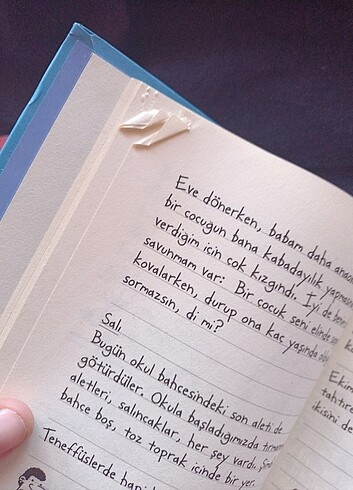 Eve dönerken, babam daha
bir çocuğun bana kabadayılık
verdiğim için çok kızgındı. İyi de benim
savunmam var: Bir çocuk seni elinde
kovalarken, durup ona kaç yaşında
sormazsın, di mi?
Salı
Bugün okul bahçesindeki son aleti de
götürdüler. Okula başladığımızda
aletleri, salıncaklar, her şey vardı.
bahçe boş, toz toprak içinde bir yer.
Teneffüslerde
Ekim
tahtır
ikisini de